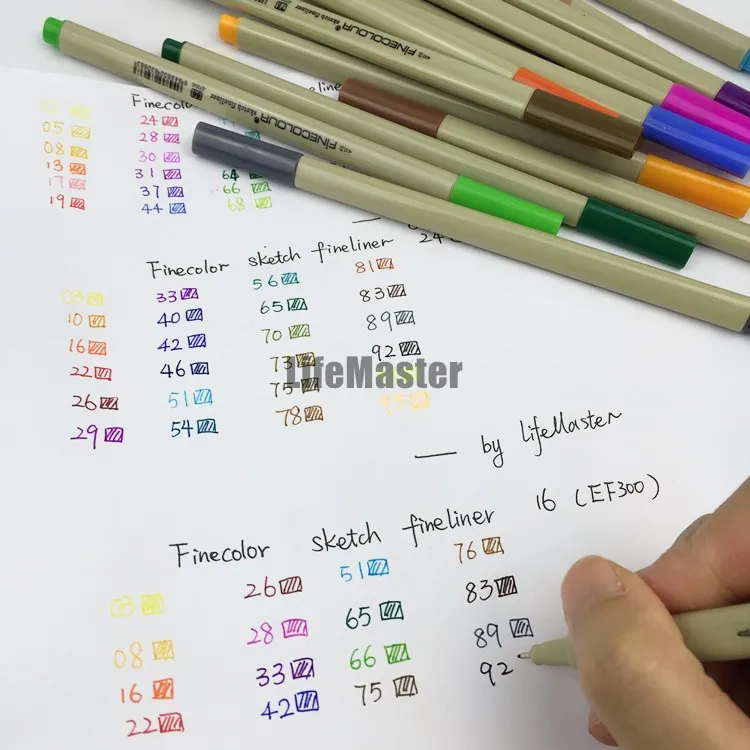 FINECOLOUR sketch fineliner
FINECOLOUR sketch fineliner
Finecolo
24
05 28
08 30
13 31 64
17 37 66
19 44 68
Finecolor sketch fineliner 24
03 33 56 81
10 40 65 83
16 42 70 89
22 46 73 92
26 51 75
29 54 78 95
LifeMaster
— by lifeMaster
Finecolor sketch fineliner 16 (EF300)
03 26 51 76
08 28 65 83
16 33 66 89
22 42 75 92